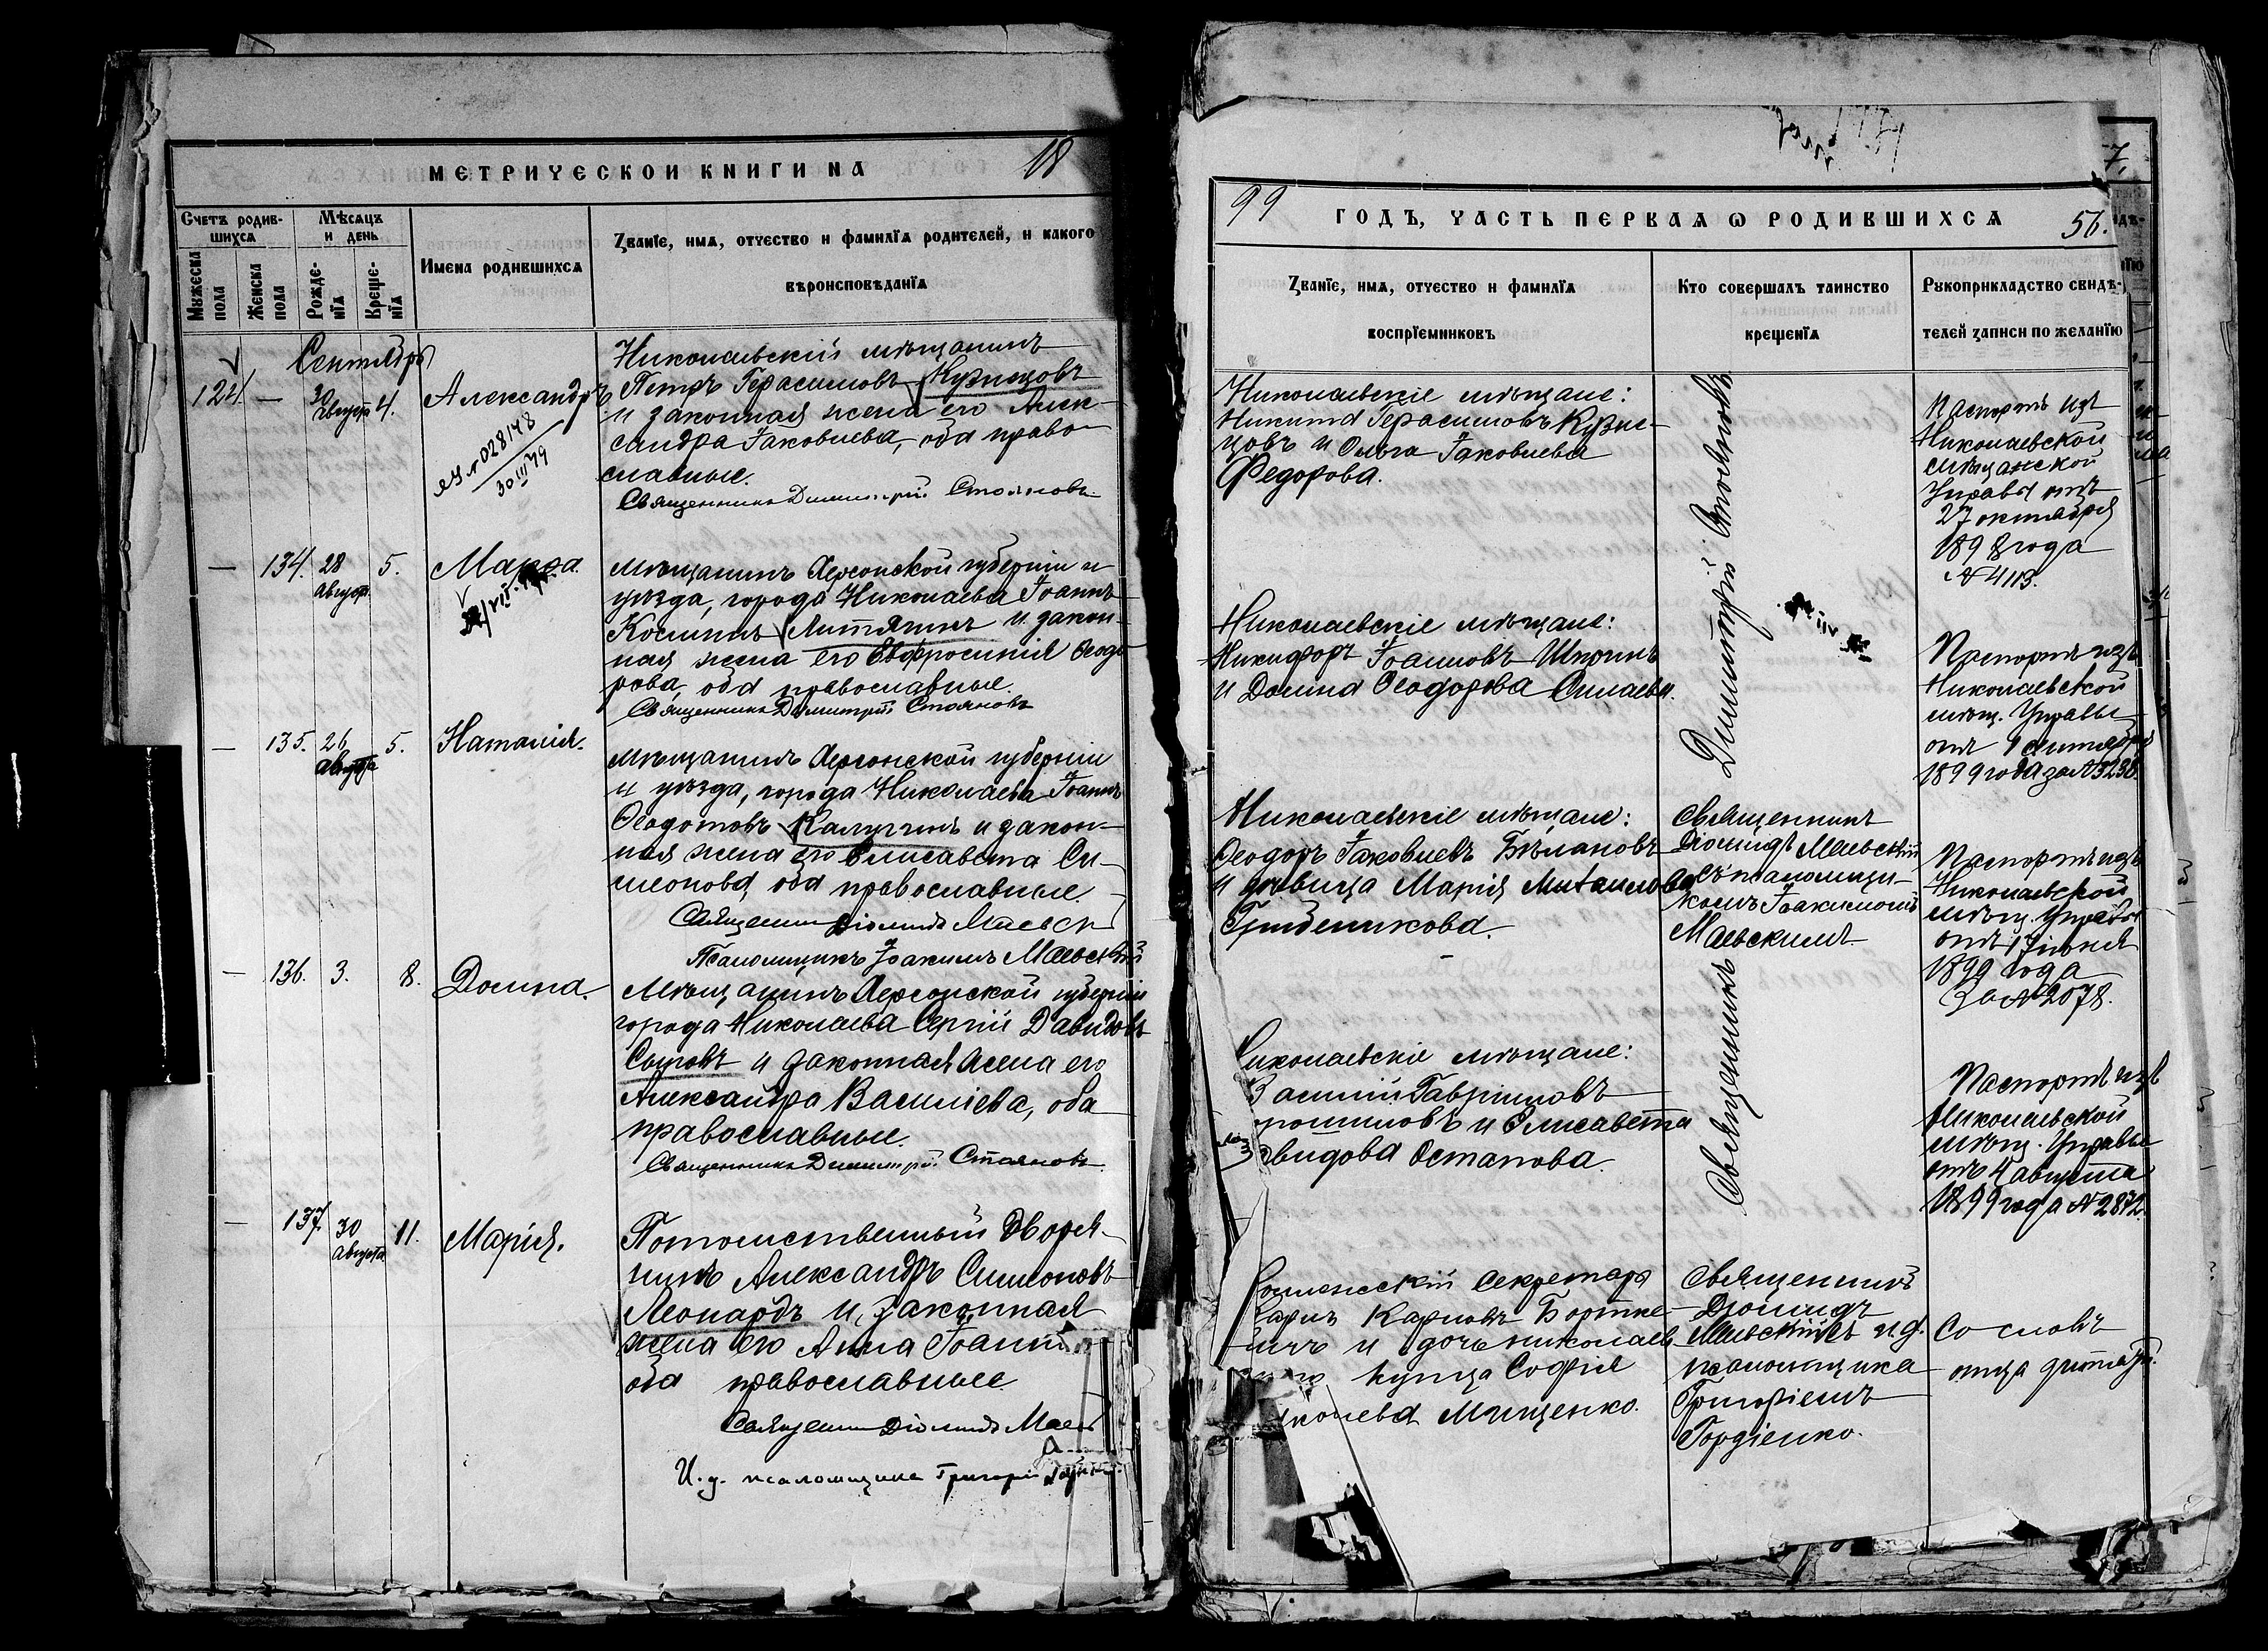 МЕТРИЧЕСКОЙ КНИГИ НА 18
Счетъ родив-
шихся
Мѣсяцъ
и день
Мужеска
пола
Женска
пола
Рожде-
нія
Креще-
нія
Имена родившихся
Званіе, имя, отчество и фамилія родителей, и какого
вѣроисповѣданія
Сентябрь
124. — 30 августа 4. Александръ
ЯЗ № 028148
30 III 79
Николаевскій мѣщанинъ
Петръ Герасимовъ Кузнецовъ
и законная жена его Алек-
сандра Іаковлева, оба право-
славные.
Священникъ Димитрій Стояновъ
— 134. 28 августа 5. Марѳа.
мѣщанинъ Херсонской губерніи и
уѣзда, города Николаева Іоаннъ
Косминъ Литягинъ и закон-
ная жена его Евфросинія Ѳеодо-
рова, оба православные.
Священникъ Димитрій Стояновъ
— 135. 26 августа 5. Наталія.
мѣщанинъ Херсонской губерніи
и уѣзда, города Николаева Іоаннъ
Ѳеодотовъ Калугинъ и закон-
ная жена его Елисавета Си-
меонова, оба православные.
Священникъ Діомидъ Маевск
Псаломщикъ Іоакимъ Маевскій
— 136. 3. 8. Домна.
Мѣщанинъ Херсонской губерніи
города Николаева Сергій Давидовъ
Сыровъ и законная жена его
Александра Василіева, оба
православные.
Священникъ Димитрій Стояновъ
— 137. 30 августа 11. Марія.
Потомственный дворя-
нинъ Александръ Симеоновъ
Леонардъ и законная
жена его Анна
оба православные.
Священникъ Діомидъ Маев
И. д. псаломщика Григорій
99 ГОДЪ, ЧАСТЬ ПЕРВАЯ Ѡ РОДИВШИХСЯ 56.
7.
Званіе, имя, отчество и фамилія
воспріемниковъ
Кто совершалъ таинство
крещенія
Рукоприкладство свидѣ-
телей записи по желанію
Николаевскіе мѣщане:
Никита Герасимовъ Кузне-
цовъ и Ольга Іаковлева
Федорова.
Священникъ Димитрій Стояновъ
Паспортъ изъ
Николаевской
мѣщанской
Управы отъ
27 октября
1898 года
№ 4113.
Николаевскіе мѣщане:
Никифоръ Іоанновъ Шпринъ
и Домна Ѳеодорова Силаева.
Паспортъ изъ
Николаевской
мѣщ. Управы
отъ 1 сентября
1899 года за № 3238.
Николаевскіе мѣщане:
Ѳеодоръ Іаковлевъ Бѣлановъ
и дѣвица Марія Михаилова
Гребенникова.
Священникъ
Діомидъ Маевскій
съ псаломщи-
комъ Іоакимомъ
Маевскимъ.
Паспортъ изъ
Николаевской
мѣщ. Управы
отъ 17 іюня
1899 года
за № 2078.
Николаевскіе мѣщане:
Василій Гавріиловъ
и Елисавета
Давидова Остапова.
Паспортъ изъ
Николаевской
мѣщ. Управы
отъ 4 августа
1899 года № 2872.
Секретарь
Карпъ Карповъ Бортке-
вичъ и дочь николаев
купца Софія
Мищенко.
Священникъ
Діомидъ
Маевскій съ и. д.
псаломщика
Григоріемъ
Гордіенко.
Со словъ
отца дитяти.